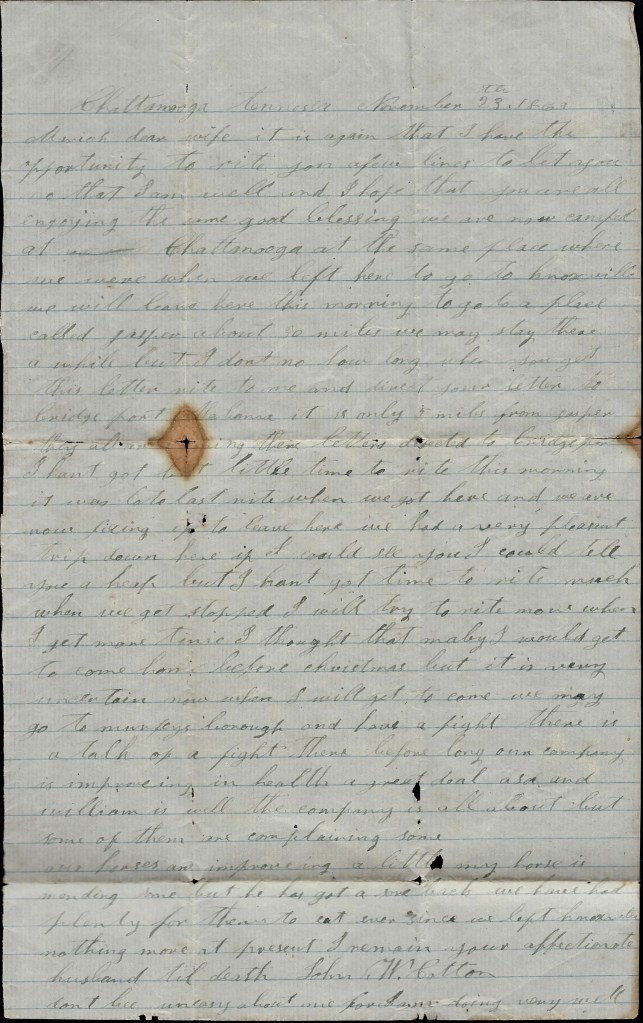 Chattanooga Tennessee November 23th
Much dear wife it is again that I have the
opportunity to rite you a few lines to let you
no that I am well and I hope that you are all
enjoying the same good blessing we are now camped
at Chattanooga at the same place where
we were when we left here to go to Knoxville
we will leave here this morning to go to a place
called jasper about 30 miles we may stay there
a while but I dont no how long when you get
this letter rite to me and direct your letter to
bridge port Alabama it is only 8 miles from jasper
there letters directed to bridgeport
I hant got but little time to rite this morning
it was late last nite when we got here and we are
now fixing up to leave here we had a very pleasant
trip down here if I could see you I could tell
you a heap but I hant got time to rite much
when we get stopped I will try to rite more when
I get more time I thought that maby I would get
to come home before christmas but it is very
uncertain now when I will get to come we may
go to murpeysborough and have a fight there is
a talk of a fight there before long our company
is improveing in health a great deal asa and
william is well the company is all about but
some of them are complaining some
our horses are improveing a little my horse is
mending some but he has got a sore back we have had
plenty for them to eat ever since we left knoxville
nothing more at present I remain your affectionate
husband til death John W. Cotton
dont bee uneasy about me for I am doing very well